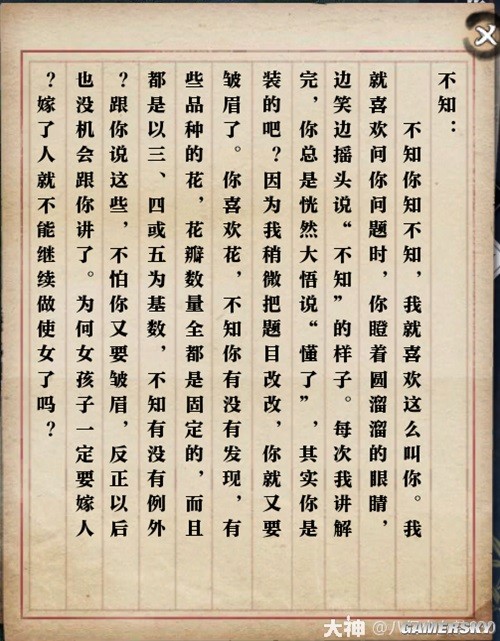 不知：
不知你知不知，我就喜欢这么叫你。我
就喜欢问你问题时，你瞪着圆溜溜的眼睛，
边笑边摇头说“不知”的样子。每次我讲解
完，你总是恍然大悟说“懂了”，其实你是
装的吧？因为我稍微把题目改改，你就又要
皱眉了。你喜欢花，不知你有没有发现，有
些品种的花，花瓣数量全都是固定的，而且
都是以三、四或五为基数，不知有没有例外
？跟你说这些，不怕你又要皱眉，反正以后
也没机会跟你讲了。为何女孩子一定要嫁人
？嫁了人就不能继续做使女了吗？
大神
GAMERSKY